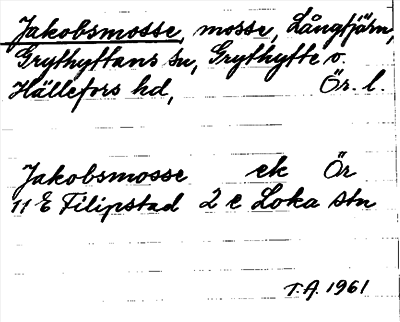 Jakobsmosse, mosse, Långtjärn,
Grythyttans sn, Grythytte o.
Hällefors hd, Ör. l.
Jakobsmosse ek Ör
11 E Filipstad 2 e Loka stn
T.A. 1961